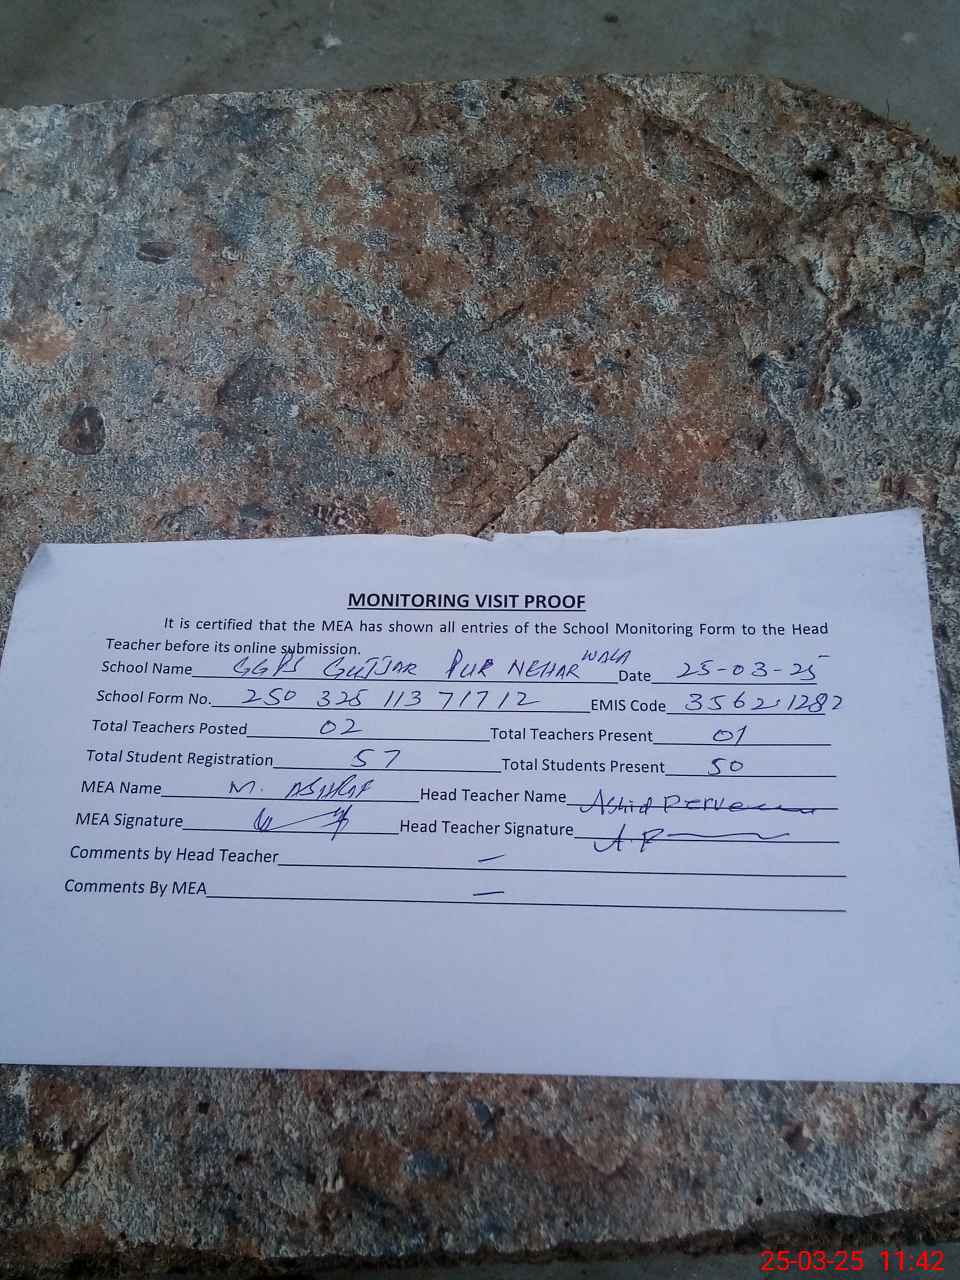 MONITORING VISIT PROOF
It is certified that the MEA has shown all entries of the School Monitoring Form to the Head
Teacher before its online submission.
School Name GGPS GUJJAR PUR NEHAR WALA Date 25-03-25
School Form No. 250 325 113 71712 EMIS Code 35621282
Total Teachers Posted 02 Total Teachers Present 01
Total Student Registration 57 Total Students Present 50
MEA Name M. ASHRAF Head Teacher Name Perveen
MEA Signature Head Teacher Signature A.P
Comments by Head Teacher —
Comments By MEA —
25-03-25 11:42